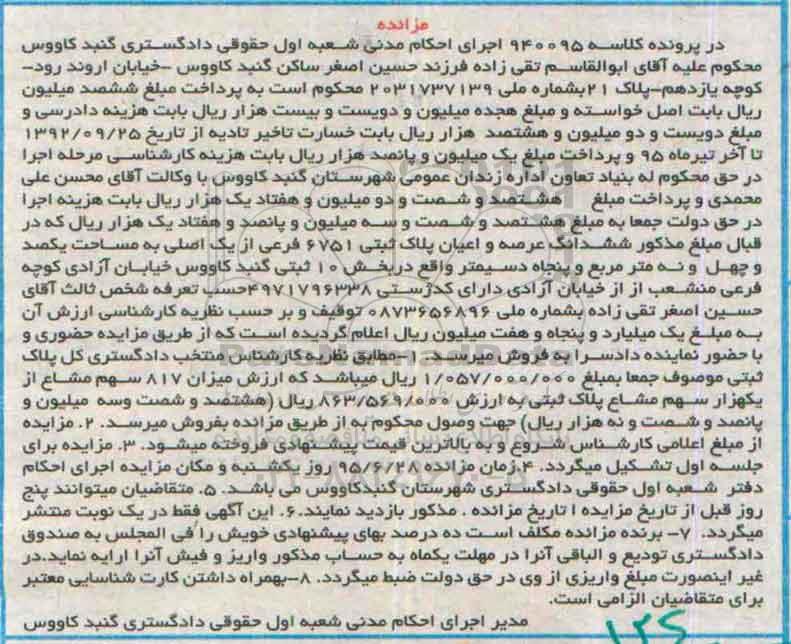 مزانده
در پرونده کلاسه ۹۴۰۰۹۵ اجرای احکام مدنی شعبه اول حقوقی دادگستری گنبد کاووس
محکوم علیه آقای ابوالقاسم تقی زاده فرزند حسین اصغر ساکن گنبد کاووس -خیابان اروند رود-
کوچه یازدهم-پلاک ۲۱بشماره ملی ۲۰۳۱۷۳۷۱۳۹ محکوم است به پرداخت مبلغ ششصد میلیون
ریال بابت اصل خواسته و مبلغ هجده میلیون و دویست و بیست هزار ریال بابت هزینه دادرسی و
مبلغ دویست و دو میلیون و هشتصد هزار ریال بابت خسارت تاخیر تادیه از تاریخ ۱۳۹۲/۰۹/۲۵
تا آخر تیرماه ۹۵ و پرداخت مبلغ یک میلیون و پانصد هزار ریال بابت هزینه کارشناسی مرحله اجرا
در حق محکوم له بنیاد تعاون اداره زندان عمومی شهرستان گنبد کاووس با وکالت آقای محسن علی
محمدی و پرداخت مبلغ هشتصد و شصت و دو میلیون و هفتاد یک هزار ریال بابت هزینه اجرا
در حق دولت جمعا به مبلغ هشتصد و شصت و سه میلیون و پانصد و هفتاد یک هزار ریال که در
قبال مبلغ مذکور ششدانگ عرصه و اعیان پلاک ثبتی ۶۷۵۱ فرعی از یک اصلی به مساحت یکصد
و چهل و نه متر مربع و پنجاه دسیمتر واقع دربخش ۱۰ ثبتی گنبد کاووس خیابان آزادی کوچه
فرعی منشعب از از خیابان آزادی دارای کدژستی ۴۹۷۱۷۹۶۳۳۸حسب تعرفه شخص ثالث آقای
حسین اصغر تقی زاده بشماره ملی ۰۸۷۳۶۵۶۸۹۶ توقیف و بر حسب نظریه کارشناسی ارزش آن
به مبلغ یک میلیارد و پنجاه و هفت میلیون ریال اعلام گردیده است که از طریق مزایده حضوری و
با حضور نماینده دادسرا به فروش میرسد. ۱-مطابق نظریه کارشناس منتخب دادگستری کل پلاک
ثبتی موصوف جمعا بمبلغ ۱/۰۵۷/۰۰۰/۰۰۰ ریال میباشد که ارزش میزان ۸۱۷ سهم مشاع از
یکهزار سهم مشاع پلاک ثبتی به ارزش ۸۶۳/۵۶۹/۰۰۰ ریال (هشتصد و شصت وسه میلیون و
پانصد و شصت و نه هزار ریال) جهت وصول محکوم به از طریق مزانده بفروش میرسد. ۲. مزایده
از مبلغ اعلامی کارشناس شروع و به بالاترین قیمت پیشنهادی فروخته میشود. ۳. مزایده برای
جلسه اول تشکیل میگردد. ۴.زمان مزانده ۹۵/۶/۲۸ روز یکشنبه و مکان مزایده اجرای احکام
دفتر شعبه اول حقوقی دادگستری شهرستان گنبدکاووس می باشد. ۵. متقاضیان میتوانند پنج
روز قبل از تاریخ مزایده ا تاریخ مزانده . مذکور بازدید نمایند.۶. این آگهی فقط در یک نوبت منتشر
میگردد. ۷- برنده مزانده مکلف است ده درصد بهای پیشنهادی خویش را فی المجلس به صندوق
دادگستری تودیع و الباقی آنرا در مهلت یکماه به حساب مذکور واریز و فیش آنرا ارایه نماید.در
غیر اینصورت مبلغ واریزی از وی در حق دولت ضبط میگردد. ۸-بهمراه داشتن کارت شناسایی معتبر
برای متقاضیان الزامی است.
مدیر اجرای احکام مدنی شعبه اول حقوقی دادگستری گنبد کاووس